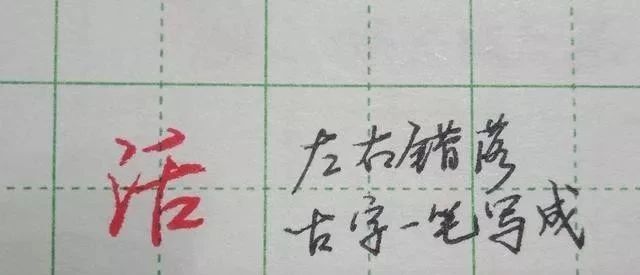 活
左右错落
古字一笔写成